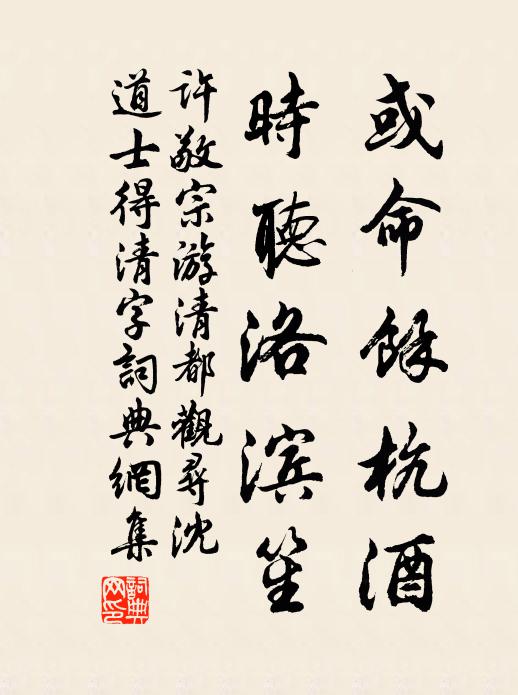 或命餘杭酒
時聽洛滨笙
許敬宗游清都觀尋沈
道士得清字詞典網集
詞典
网印